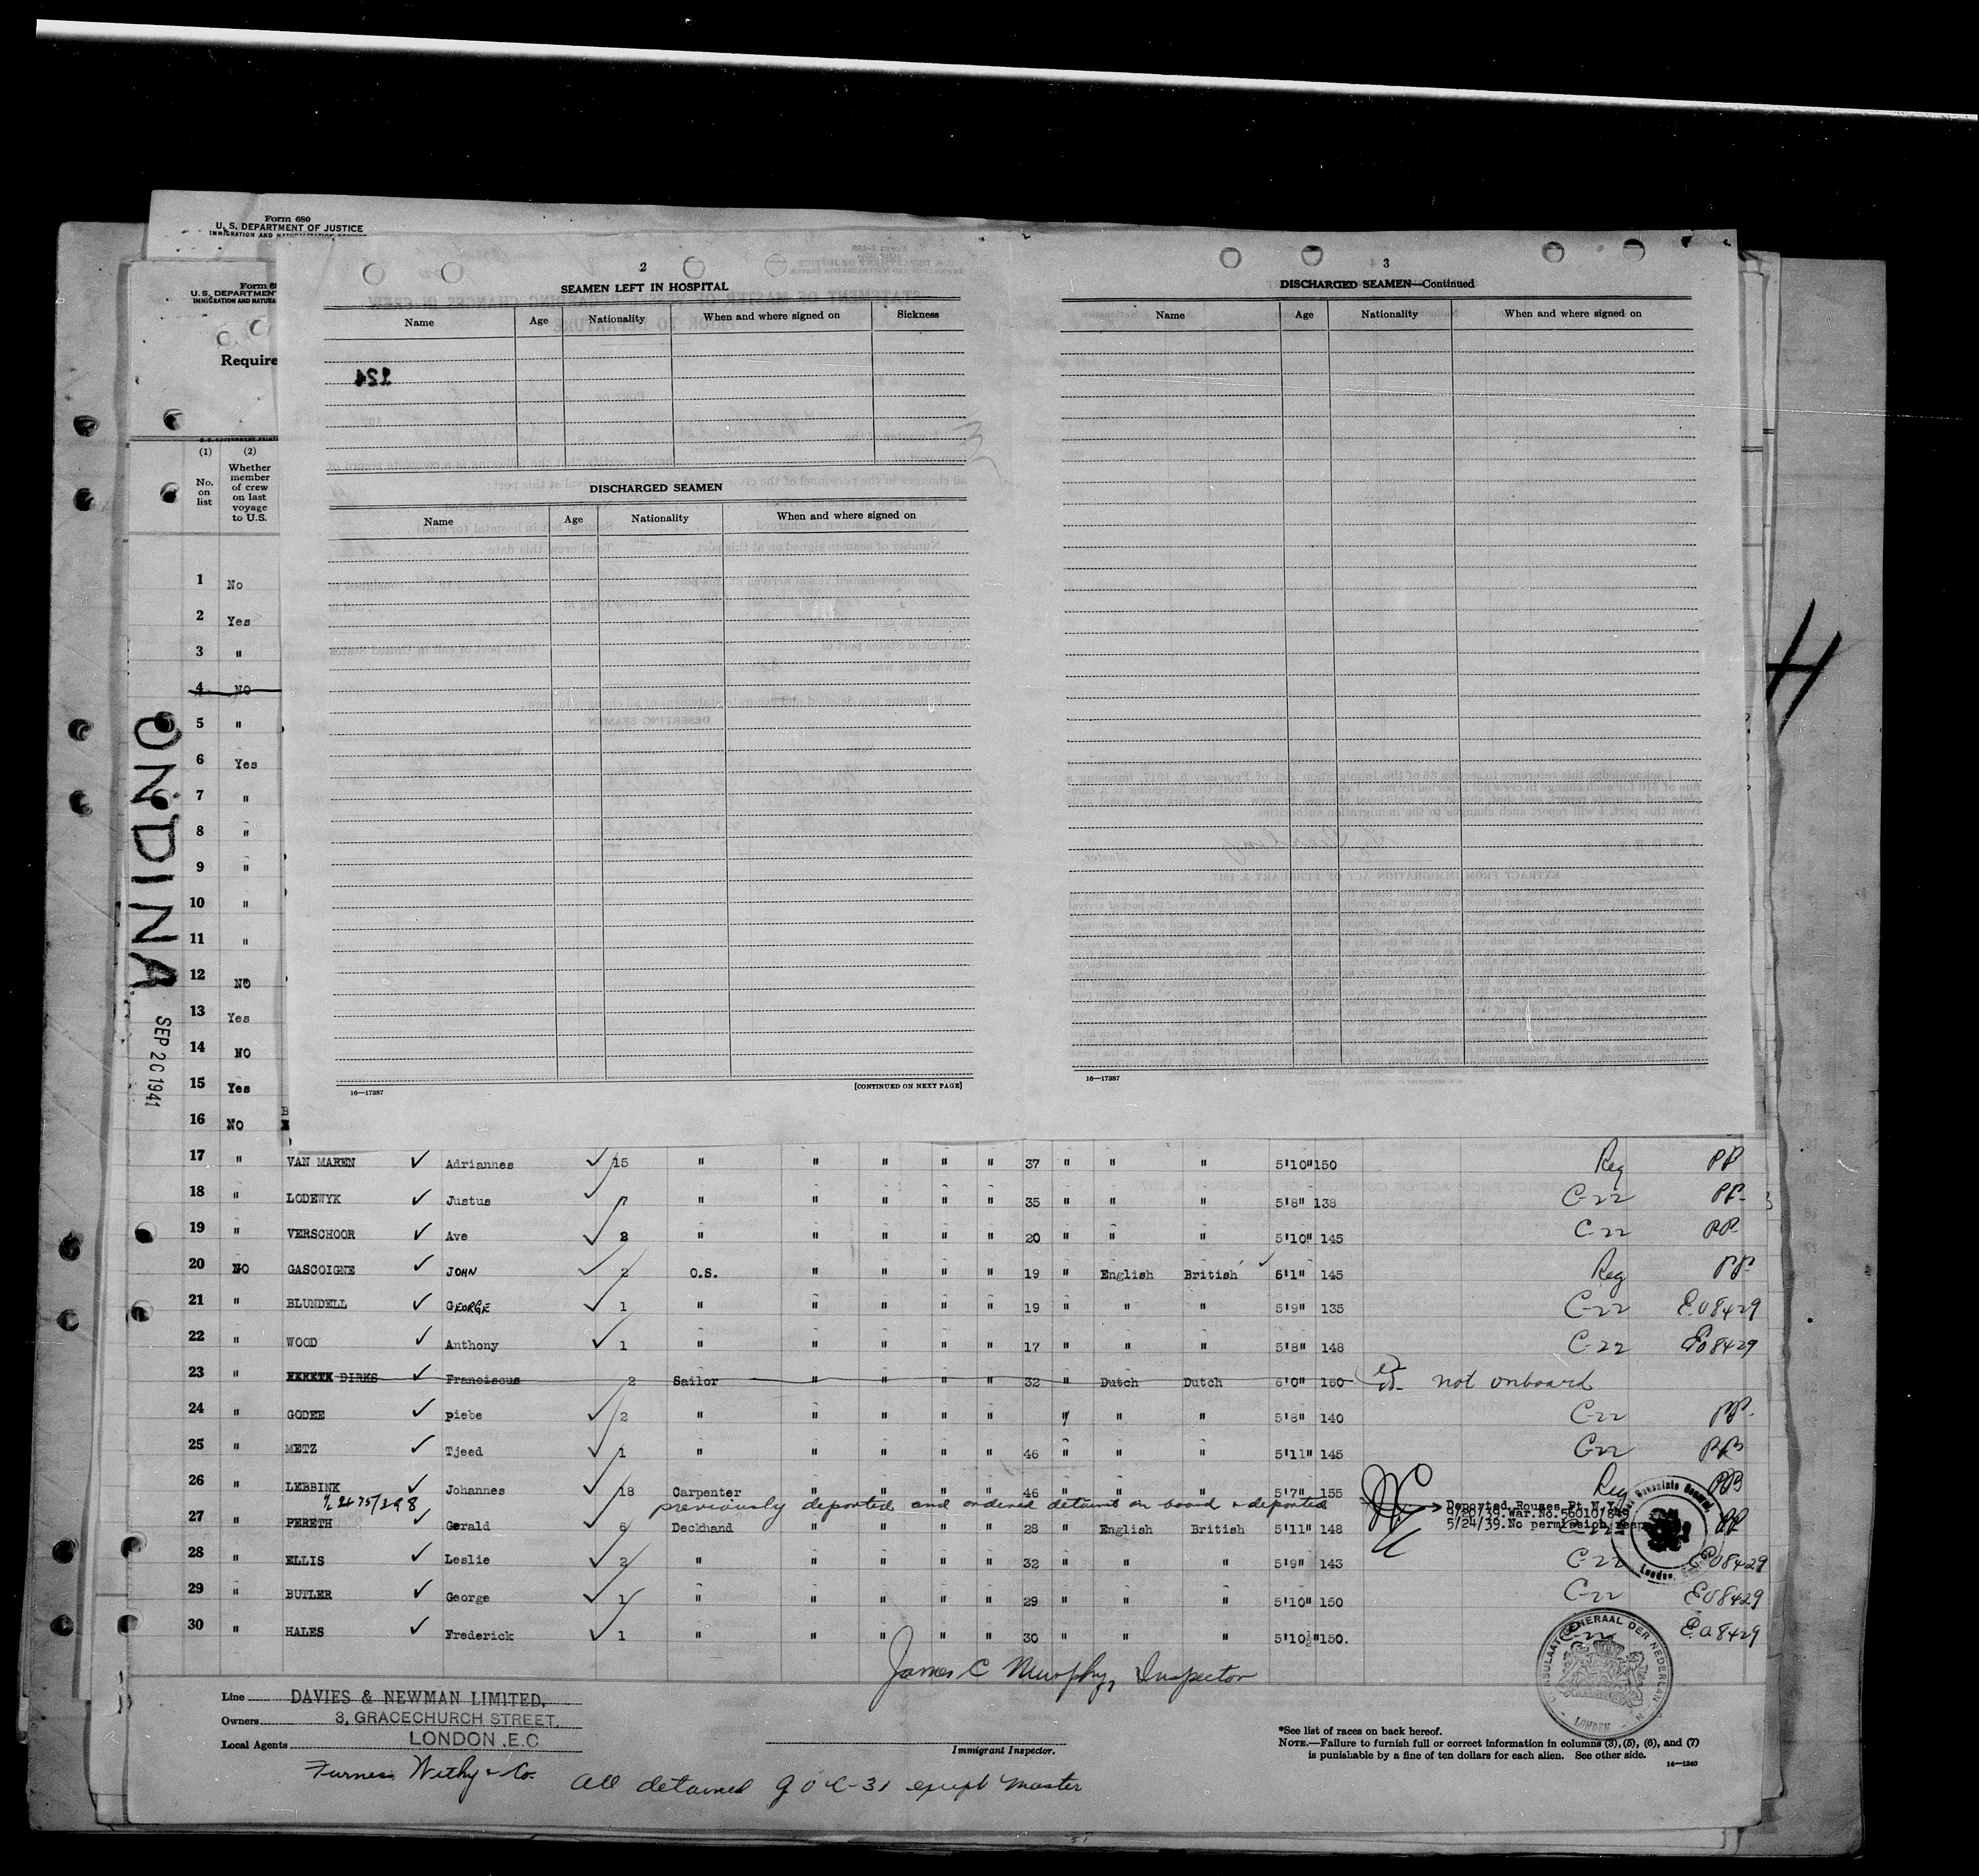 Form 680
U. S. DEPARTMENT OF JUSTICE
U. S. DEPARTMENT
Require
2
SEAMEN LEFT IN HOSPITAL
Name Age Nationality When and where signed on Sickness
124
DISCHARGED SEAMEN
Name Age Nationality When and where signed on
16—17387 [CONTINUED ON NEXT PAGE]
3
DISCHARGED SEAMEN—Continued
Name Age Nationality When and where signed on
16—17387
(1) (2)
No. on list
Whether member of crew on last voyage to U.S.
1 No
2 Yes
3 "
4 NO
5 "
6 Yes
7 "
8 "
9 "
10 "
11 "
12 NO
13 Yes
14 NO
15 Yes
16 NO
ONDINA
SEP 20 1941
H
17 " VAN MAREN ✓ Adriannes ✓ 15 " " " " " 37 " " " 5'10" 150 Reg PP
18 " LODEWYK ✓ Justus ✓ 7 " " " " " 35 " " " 5'8" 138 C-22 PP
19 " VERSCHOOR ✓ Ave ✓ 2 " " " " " 20 " " " 5'10" 145 C-22 PP
20 NO GASCOIGNE ✓ JOHN ✓ 2 O.S. " " " " 19 " English British ✓ 6'1" 145 Reg PP
21 " BLUNDELL ✓ GEORGE ✓ 1 " " " " " 19 " " " 5'9" 135 C-22 E.08429
22 " WOOD ✓ Anthony ✓ 1 " " " " " 17 " " " 5'8" 148 C-22 E08429
23 " DIRKS ✓ Franciscus 2 Sailor " " " " 32 " Dutch Dutch 6'0" 150 not onboard
24 " GODEE ✓ piebe ✓ 2 " " " " " " " " 5'8" 140 C-22 PP
25 " METZ ✓ Tjeed ✓ 1 " " " " " 46 " " " 5'11" 145 C-22 PP
26 " LEBBINK ✓ Johannes ✓ 18 Carpenter " " " " 46 " " " 5'7" 155 Reg PP
previously deported and ordered detained on board & deported
Deported Rouses Pt N.Y.
27 " PERETH ✓ Gerald ✓ 6 Deckhand " " " " 28 " English British 5'11" 148 PP
5/24/39.No permission
28 " ELLIS ✓ Leslie ✓ 2 " " " " " 32 " " " 5'9" 143 C-22 E08429
29 " BUTLER ✓ George ✓ 1 " " " " " 29 " " " 5'10" 150 C-22 E08429
30 " HALES ✓ Frederick ✓ 1 " " " " " 30 " " " 5'10½" 150. C-22 E.08429
London.
CONSULAAT GENERAAL DER NEDERLANDEN
LONDEN
James C Murphy, Inspector
Line DAVIES & NEWMAN LIMITED.
Owners 3, GRACECHURCH STREET,
Local Agents LONDON .E.C
Furness Withy & Co.
Immigrant Inspector.
All detained except master
*See list of races on back hereof.
NOTE.—Failure to furnish full or correct information in columns (3), (5), (6), and (7)
is punishable by a fine of ten dollars for each alien. See other side.
14—1240